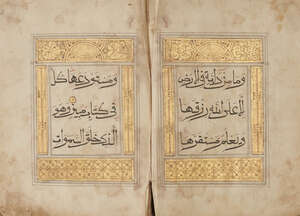 وما من دابة في الارض
الا على الله رزقها
ويعلم مستقرها
ومستودعها كل
في كتاب مبين وهو
الذي خلق السموات